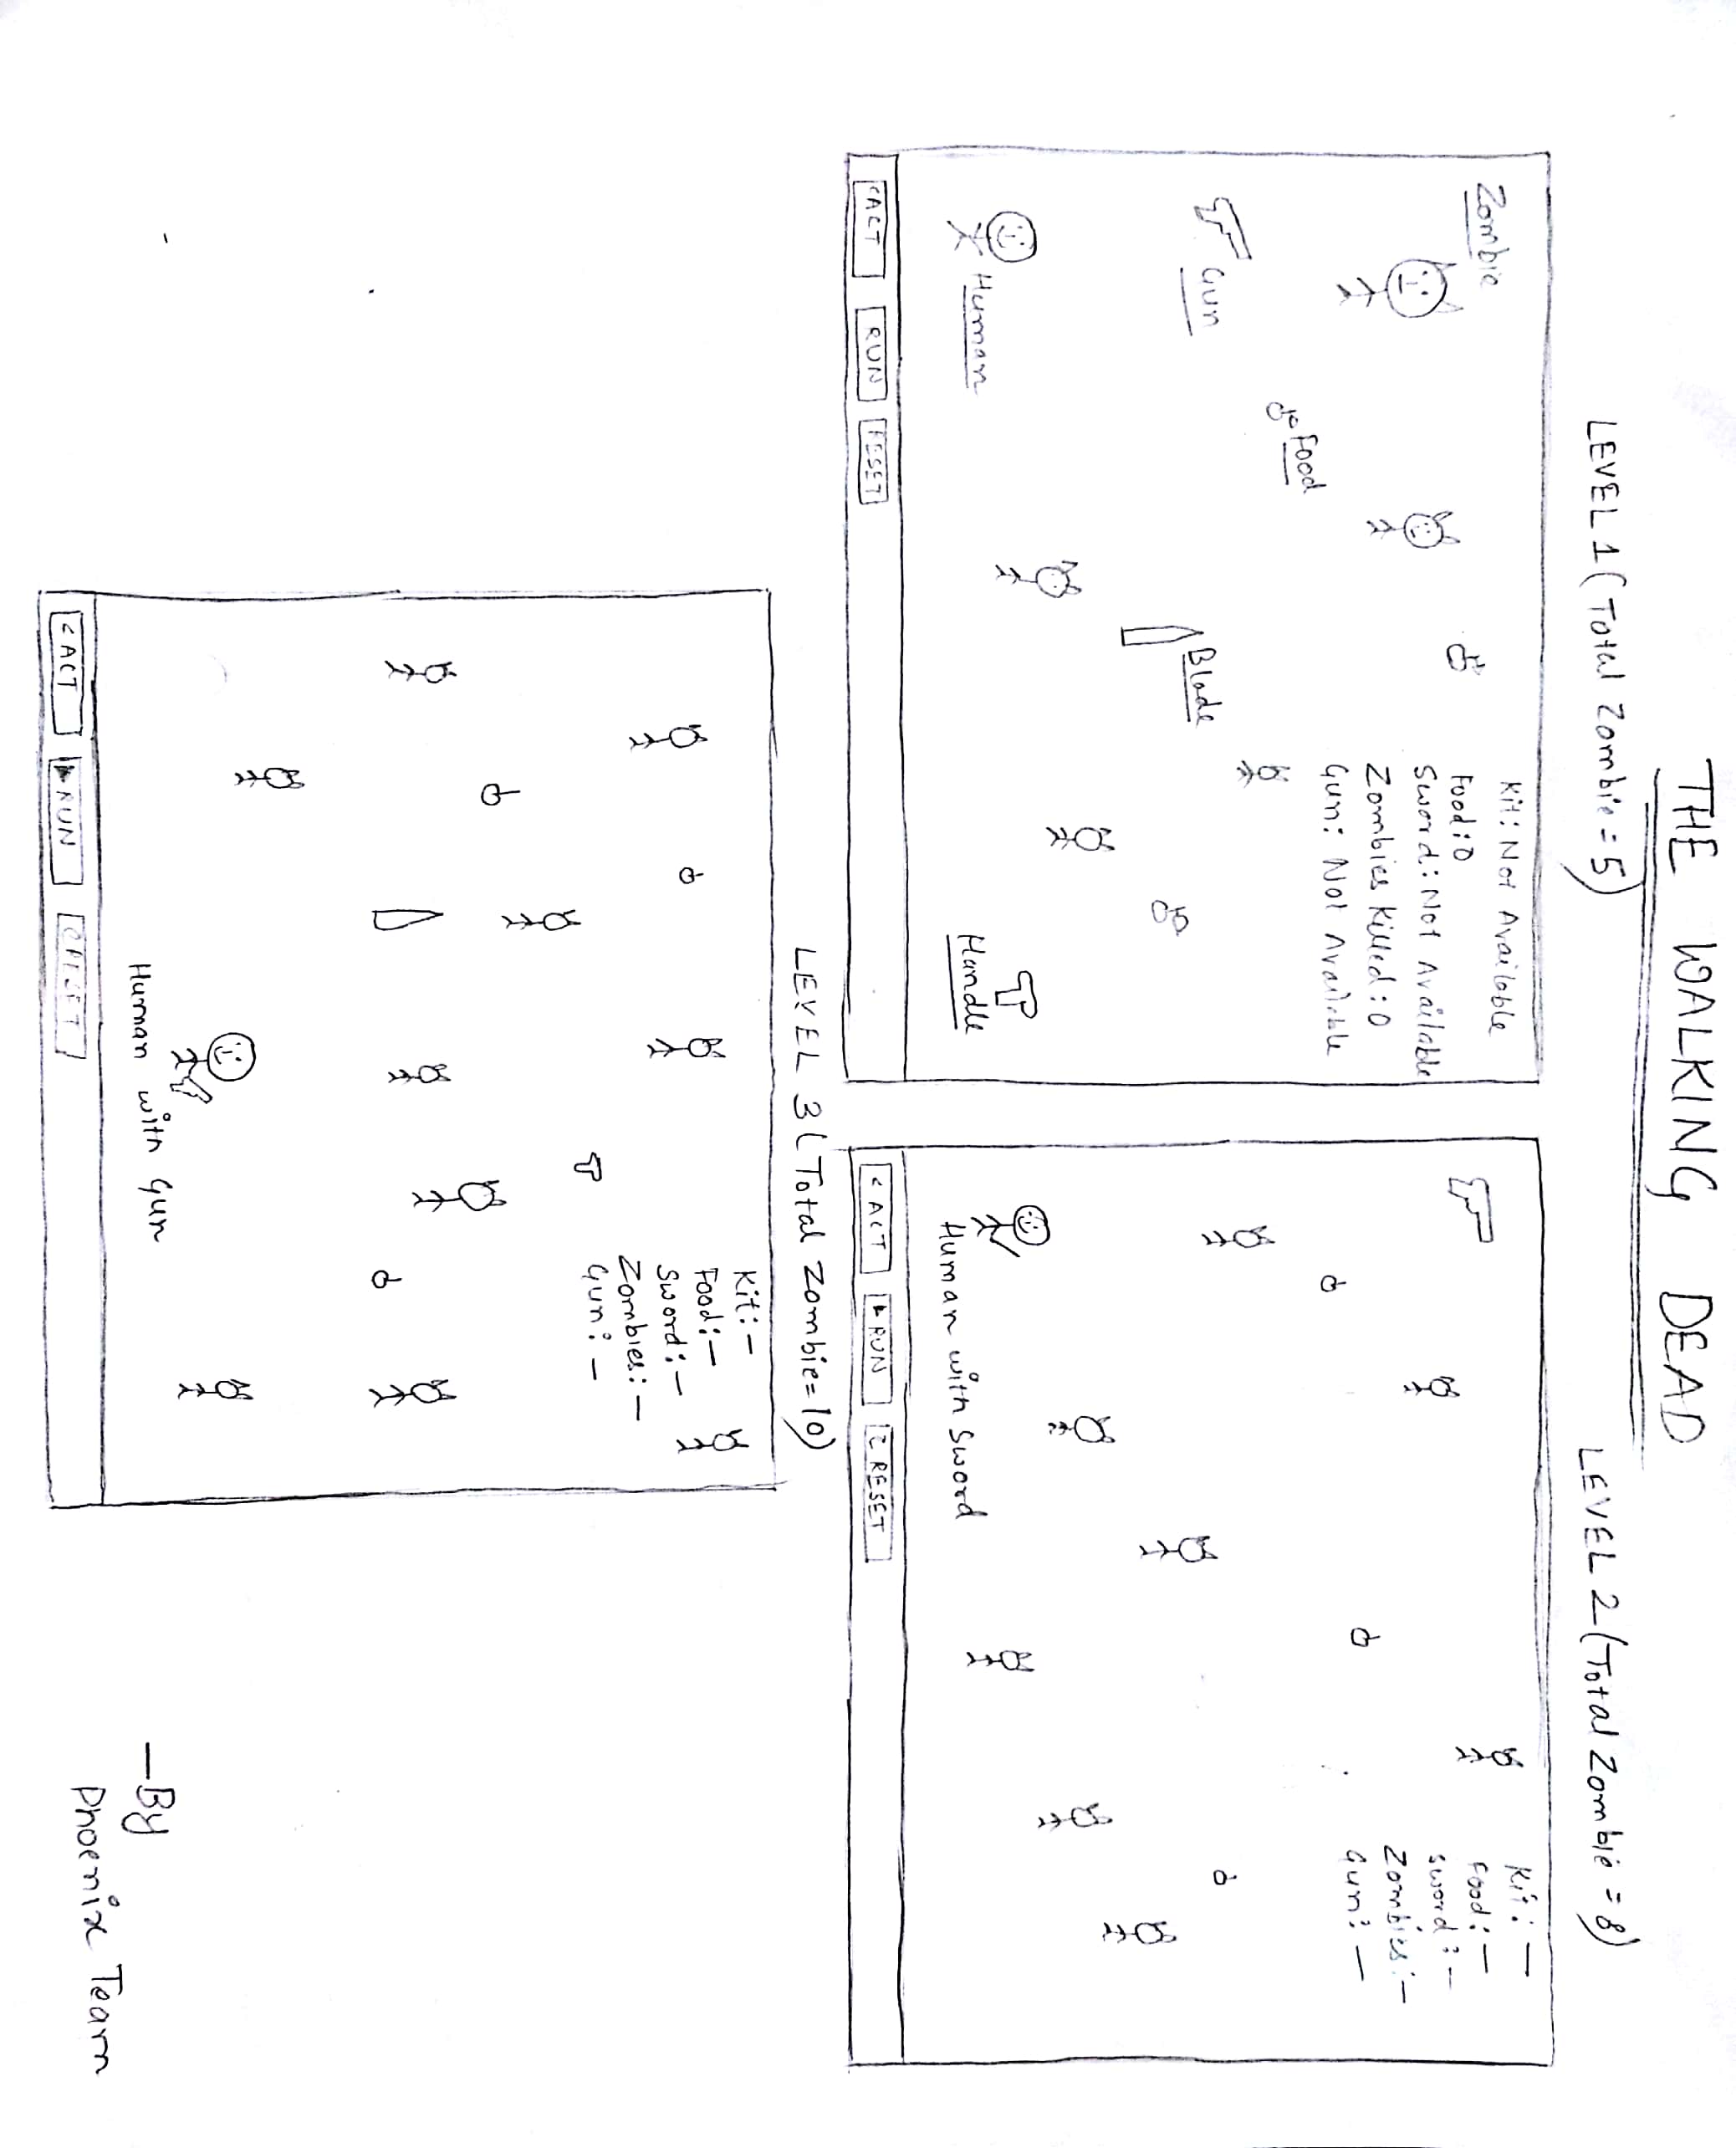 THE WALKING DEAD
LEVEL 1 (Total Zombie = 5)
Zombie
Kit: Not Available
Food: 0
Sword: Not Available
Zombies Killed: 0
Gun: Not Available
Food
Gun
Blade
Human
Handle
<ACT RUN RESET
LEVEL 2 (Total Zombie = 8)
Kit: —
Food: —
Sword: —
Zombies: —
Gun: —
Human with Sword
< ACT RUN RESET
LEVEL 3 (Total Zombie = 10)
Kit: —
Food: —
Sword: —
Zombies: —
Gun: —
Human with Gun
< ACT RUN RESET
— By
Phoenix Team